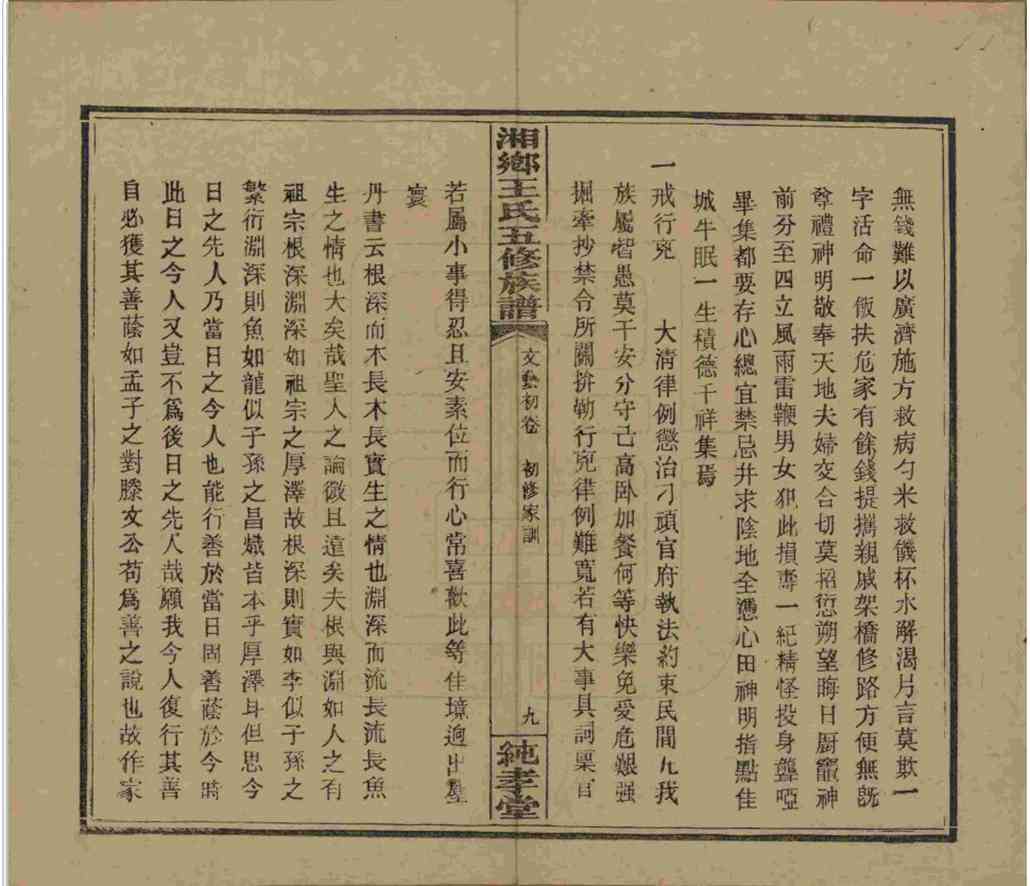 無錢難以廣濟施方救病勺米救饑杯水解渴片言莫欺一
字活命一飯扶危家有餘錢提攜親戚架橋修路方便無旣
尊禮神明敬奉天地夫婦交合切莫招愆朔望晦日厨竈神
前分至四立風雨雷鞭男女犯此損壽一紀精怪投身聾啞
畢集都要存心總宜禁忌井求陰地全憑心田神明指點佳
城牛眠一生積德千祥集焉
一戒行兇 大清律例懲治刁頑官府執法約束民間凡我
族屬智愚莫干安分守己高卧加餐何等快樂免憂危艱强
掘牽抄禁令所關拚勒行兇律例難寬若有大事具詞稟官
湘鄉王氏五修族譜
文藝初卷 初修家訓
九
純孝堂
若屬小事得忍且安素位而行心常喜歡此等佳境逈出塵
寰
丹書云根深而木長木長實生之情也淵深而流長流長魚
生之情也大矣哉聖人之論微且遠矣夫根與淵如人之有
祖宗根深淵深如祖宗之厚澤故根深則實如李似子孫之
繁衍淵深則魚如龍似子孫之昌熾皆本乎厚澤耳但思今
日之先人乃當日之今人也能行善於當日固善蔭於今時
此日之今人又豈不爲後日之先人哉願我今人復行其善
自必獲其善蔭如孟子之對滕文公苟爲善之說也故作家